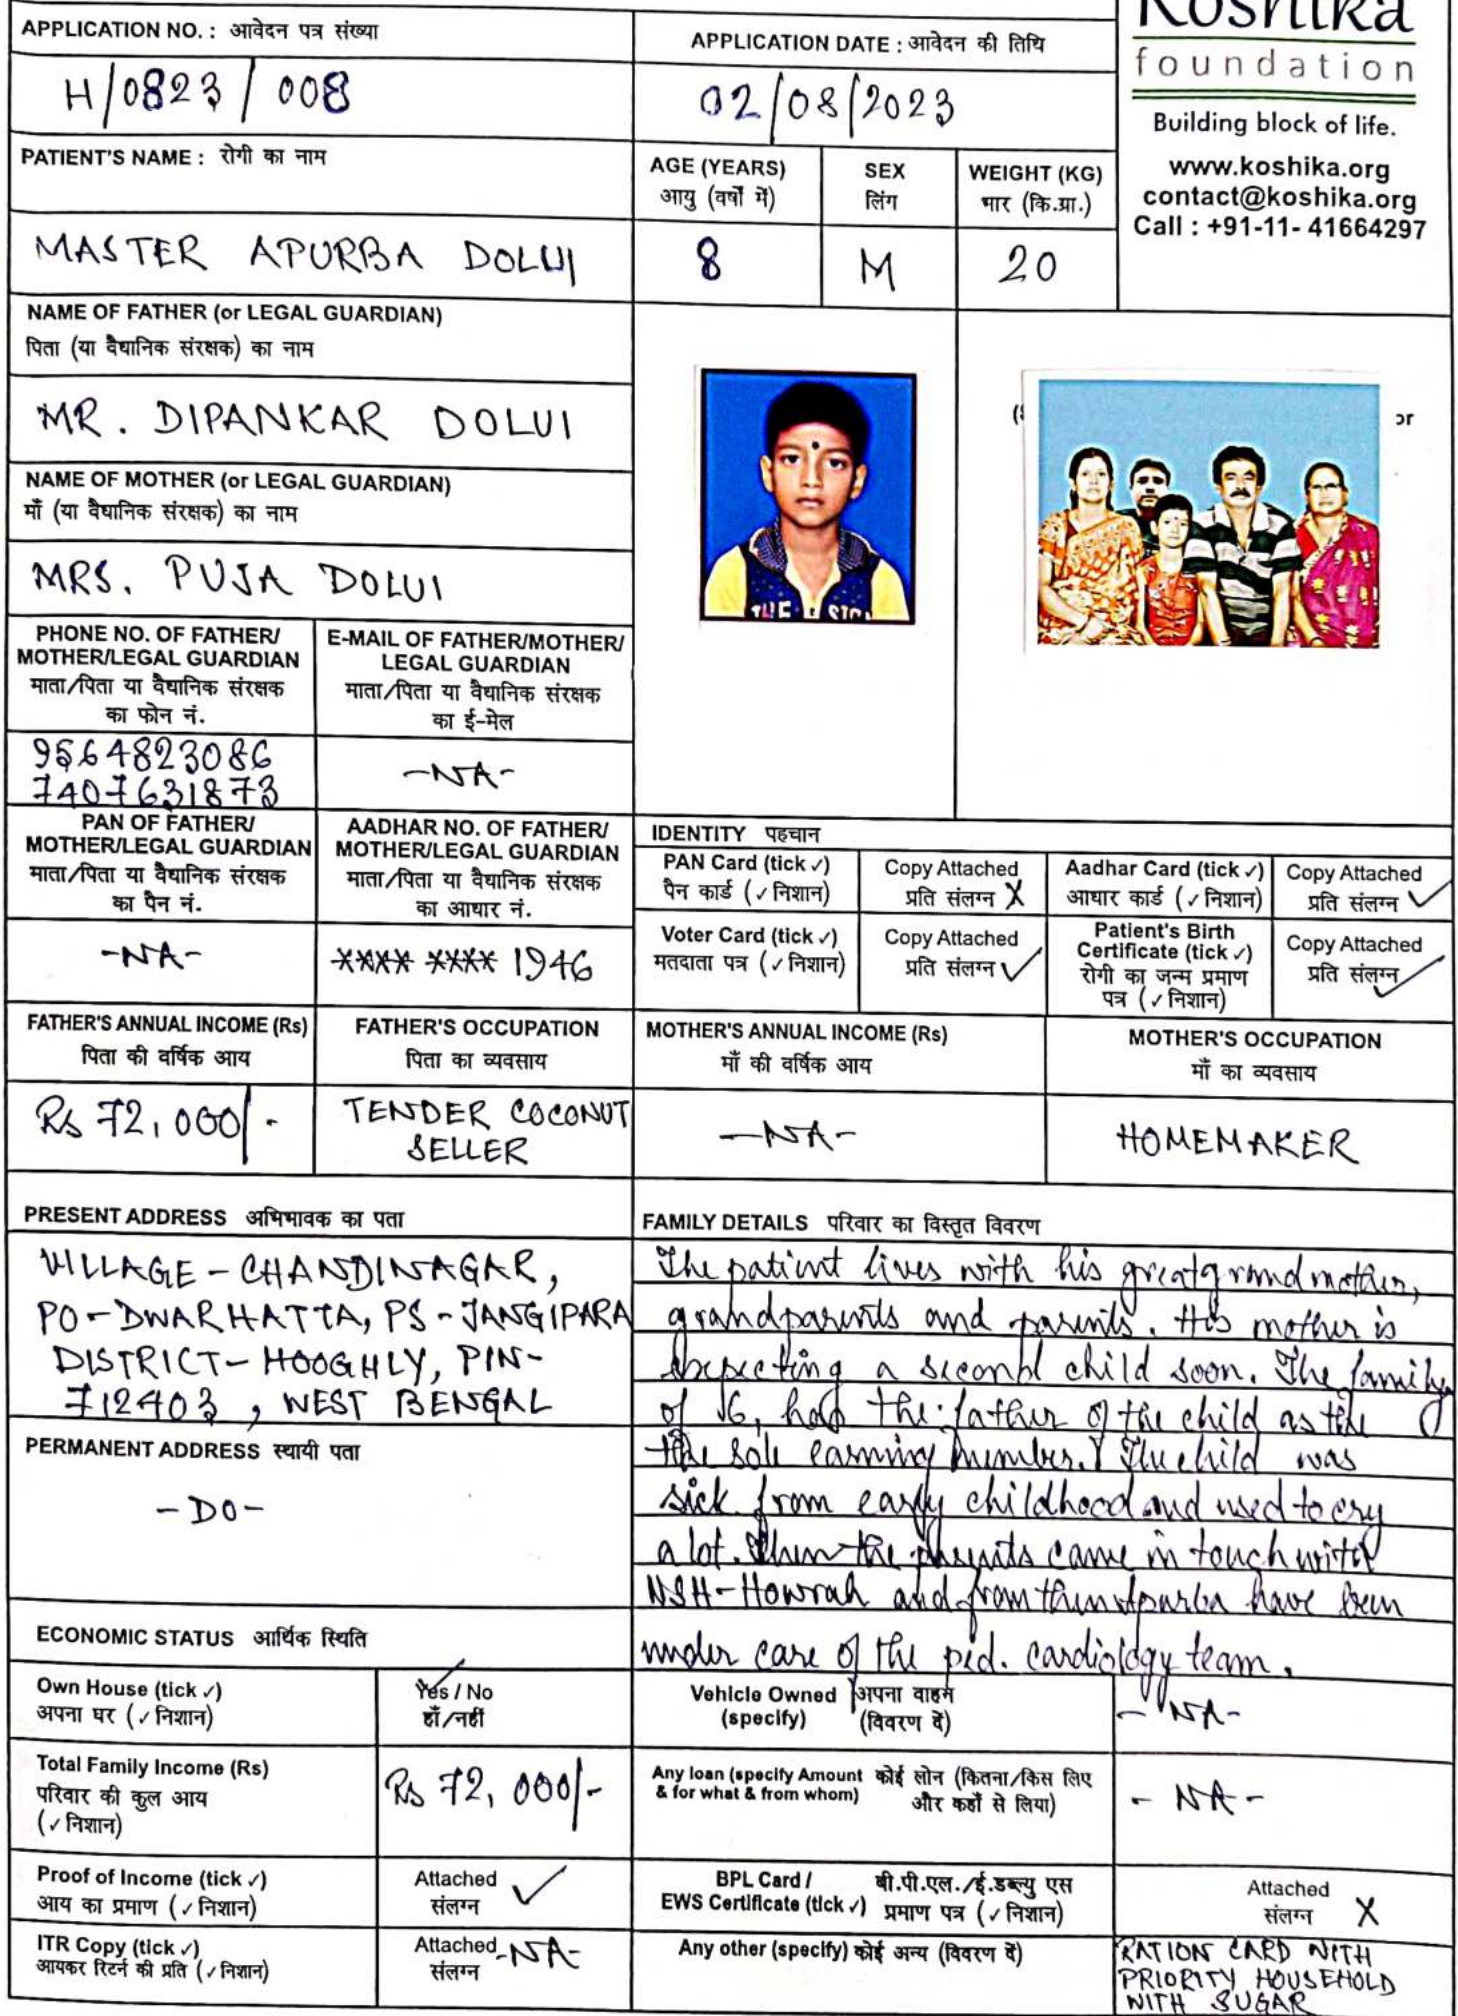 Koshika
foundation
Building block of life.
www.koshika.org
contact@koshika.org
Call : +91-11- 41664297
APPLICATION NO. : आवेदन पत्र संख्या
APPLICATION DATE : आवेदन की तिथि
H/0823/008
02/08/2023
PATIENT'S NAME : रोगी का नाम
AGE (YEARS)
आयु (वर्षों में)
SEX
लिंग
WEIGHT (KG)
भार (कि.ग्रा.)
MASTER APURBA DOLUI
8
M
20
NAME OF FATHER (or LEGAL GUARDIAN)
पिता (या वैधानिक संरक्षक) का नाम
MR. DIPANKAR DOLUI
NAME OF MOTHER (or LEGAL GUARDIAN)
माँ (या वैधानिक संरक्षक) का नाम
MRS. PUJA DOLUI
PHONE NO. OF FATHER/
MOTHER/LEGAL GUARDIAN
माता/पिता या वैधानिक संरक्षक
का फोन नं.
E-MAIL OF FATHER/MOTHER/
LEGAL GUARDIAN
माता/पिता या वैधानिक संरक्षक
का ई-मेल
9564823086
7407631873
-NA-
PAN OF FATHER/
MOTHER/LEGAL GUARDIAN
माता/पिता या वैधानिक संरक्षक
का पैन नं.
AADHAR NO. OF FATHER/
MOTHER/LEGAL GUARDIAN
माता/पिता या वैधानिक संरक्षक
का आधार नं.
-NA-
**** **** 1946
IDENTITY पहचान
PAN Card (tick ✓)
पैन कार्ड (✓ निशान)
Copy Attached
प्रति संलग्न X
Aadhar Card (tick ✓)
आधार कार्ड (✓ निशान)
Copy Attached
प्रति संलग्न ✓
Voter Card (tick ✓)
मतदाता पत्र (✓ निशान)
Copy Attached
प्रति संलग्न ✓
Patient's Birth
Certificate (tick ✓)
रोगी का जन्म प्रमाण
पत्र (✓ निशान)
Copy Attached
प्रति संलग्न ✓
FATHER'S ANNUAL INCOME (Rs)
पिता की वर्षिक आय
FATHER'S OCCUPATION
पिता का व्यवसाय
MOTHER'S ANNUAL INCOME (Rs)
माँ की वर्षिक आय
MOTHER'S OCCUPATION
माँ का व्यवसाय
Rs 72,000/-
TENDER COCONUT
SELLER
-NA-
HOMEMAKER
PRESENT ADDRESS अभिभावक का पता
VILLAGE - CHANDINAGAR,
PO - DWARHATTA, PS - JANGIPARA
DISTRICT - HOOGHLY, PIN-
712403, WEST BENGAL
PERMANENT ADDRESS स्थायी पता
-DO-
FAMILY DETAILS परिवार का विस्तृत विवरण
The patient lives with his greatgrandmother,
grandparents and parents. His mother is
expecting a second child soon. The family
of 6, has the father of the child as the
the sole earning member. The child was
sick from early childhood and used to cry
a lot. Then the parents came in touch with
NSH-Howrah and from then Apurba have been
under care of the ped. cardiology team.
ECONOMIC STATUS आर्थिक स्थिति
Own House (tick ✓)
अपना घर (✓ निशान)
Yes / No
हाँ/नहीं
Vehicle Owned अपना वाहन
(specify) (विवरण दें)
-NA-
Total Family Income (Rs)
परिवार की कुल आय
(✓ निशान)
Rs 72,000/-
Any loan (specify Amount कोई लोन (कितना/किस लिए
& for what & from whom) और कहाँ से लिया)
- NA -
Proof of Income (tick ✓)
आय का प्रमाण (✓ निशान)
Attached
संलग्न ✓
BPL Card / बी.पी.एल./ई.डब्ल्यु एस
EWS Certificate (tick ✓) प्रमाण पत्र (✓ निशान)
Attached
संलग्न X
ITR Copy (tick ✓)
आयकर रिटर्न की प्रति (✓ निशान)
Attached -NA-
संलग्न
Any other (specify) कोई अन्य (विवरण दें)
RATION CARD WITH
PRIORITY HOUSEHOLD
WITH SUGAR